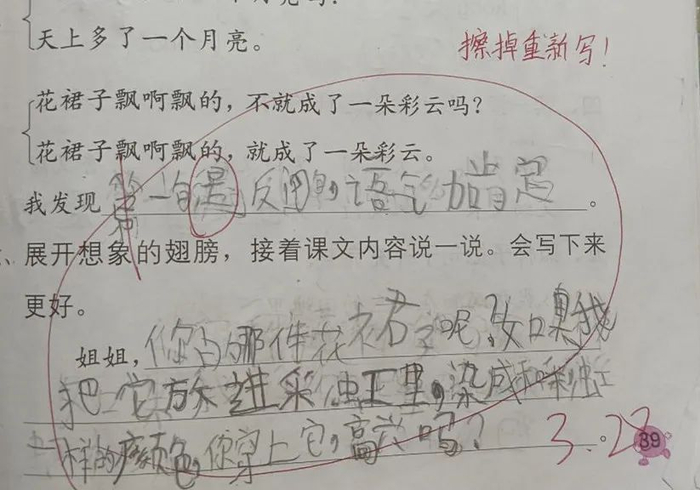 天上多了一个月亮。
擦掉重新写!
花裙子飘啊飘的，不就成了一朵彩云吗？
花裙子飘啊飘的，就成了一朵彩云。
我发现 第一句是反问的语气 加肯定。
、展开想象的翅膀，接着课文内容说一说。会写下来
更好。
姐姐，你的那件花裙子呢？如果我
把它放进彩虹里，染成和彩虹
一样的颜色，你穿上它，高兴吗？
3.23
89